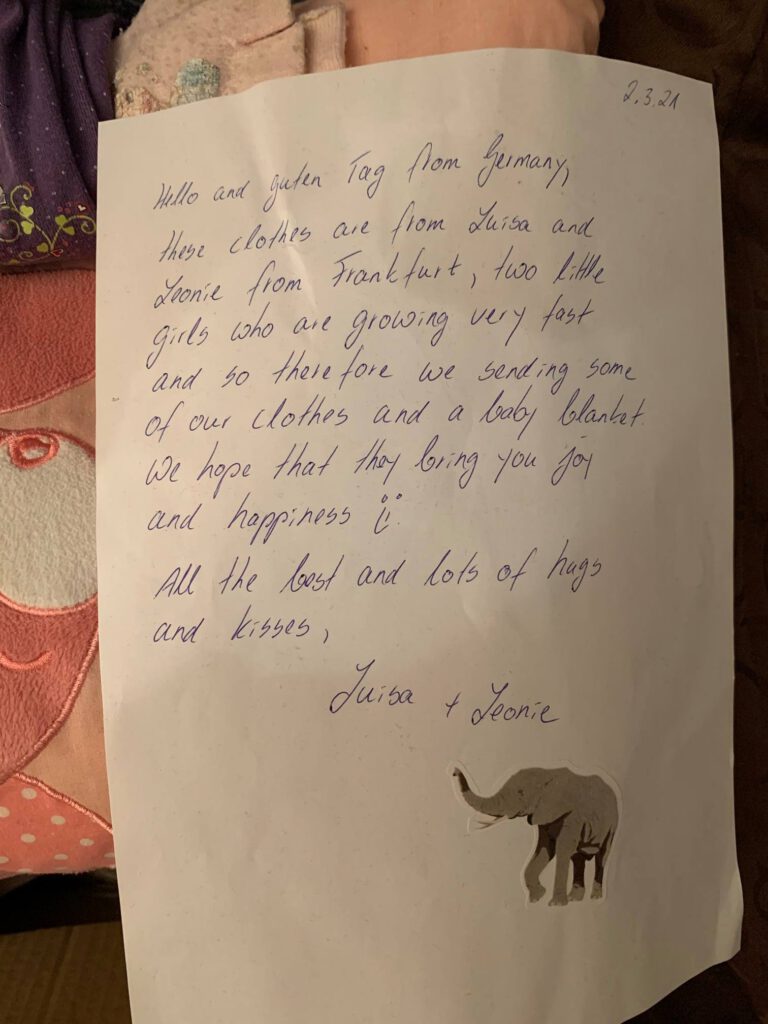 2.3.21
Hello and guten Tag from Germany,
these clothes are from Luisa and
Leonie from Frankfurt, two little
girls who are growing very fast
and so therefore we sending some
of our clothes and a baby blanket.
We hope that they bring you joy
and happiness (¨.
All the best and lots of hugs
and kisses,
Luisa + Leonie